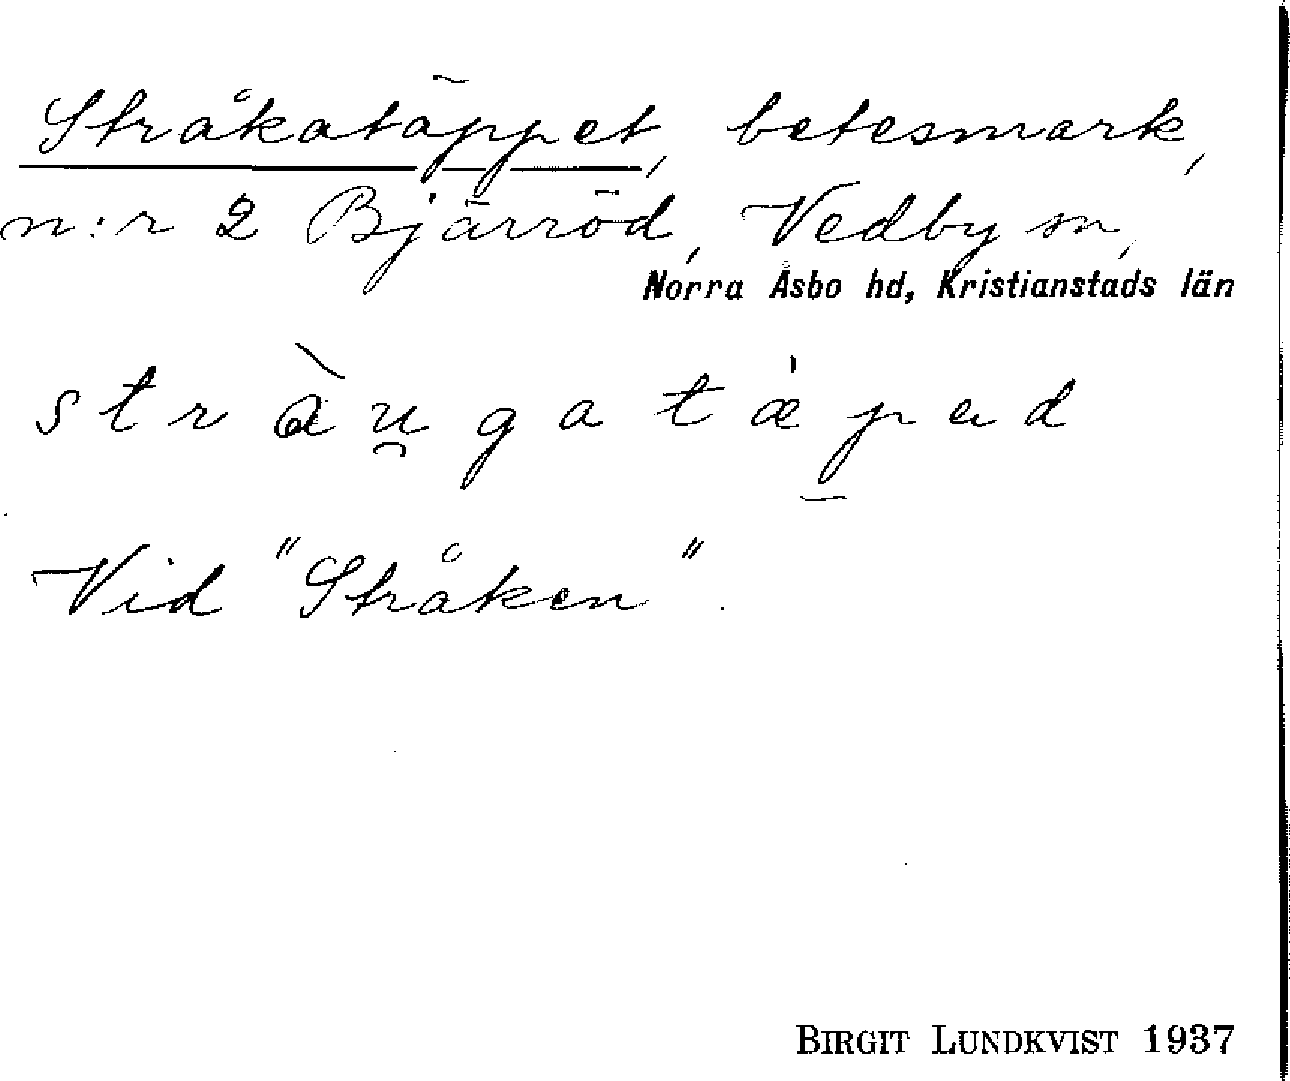 Stråkatäppet, betesmark,
n:r 2 Bjärröd, Vedby sn,
Norra Åsbo hd, Kristianstads län
stràu̯gatæ̍p̱ad
Vid "Stråken".
BIRGIT LUNDKVIST 1937